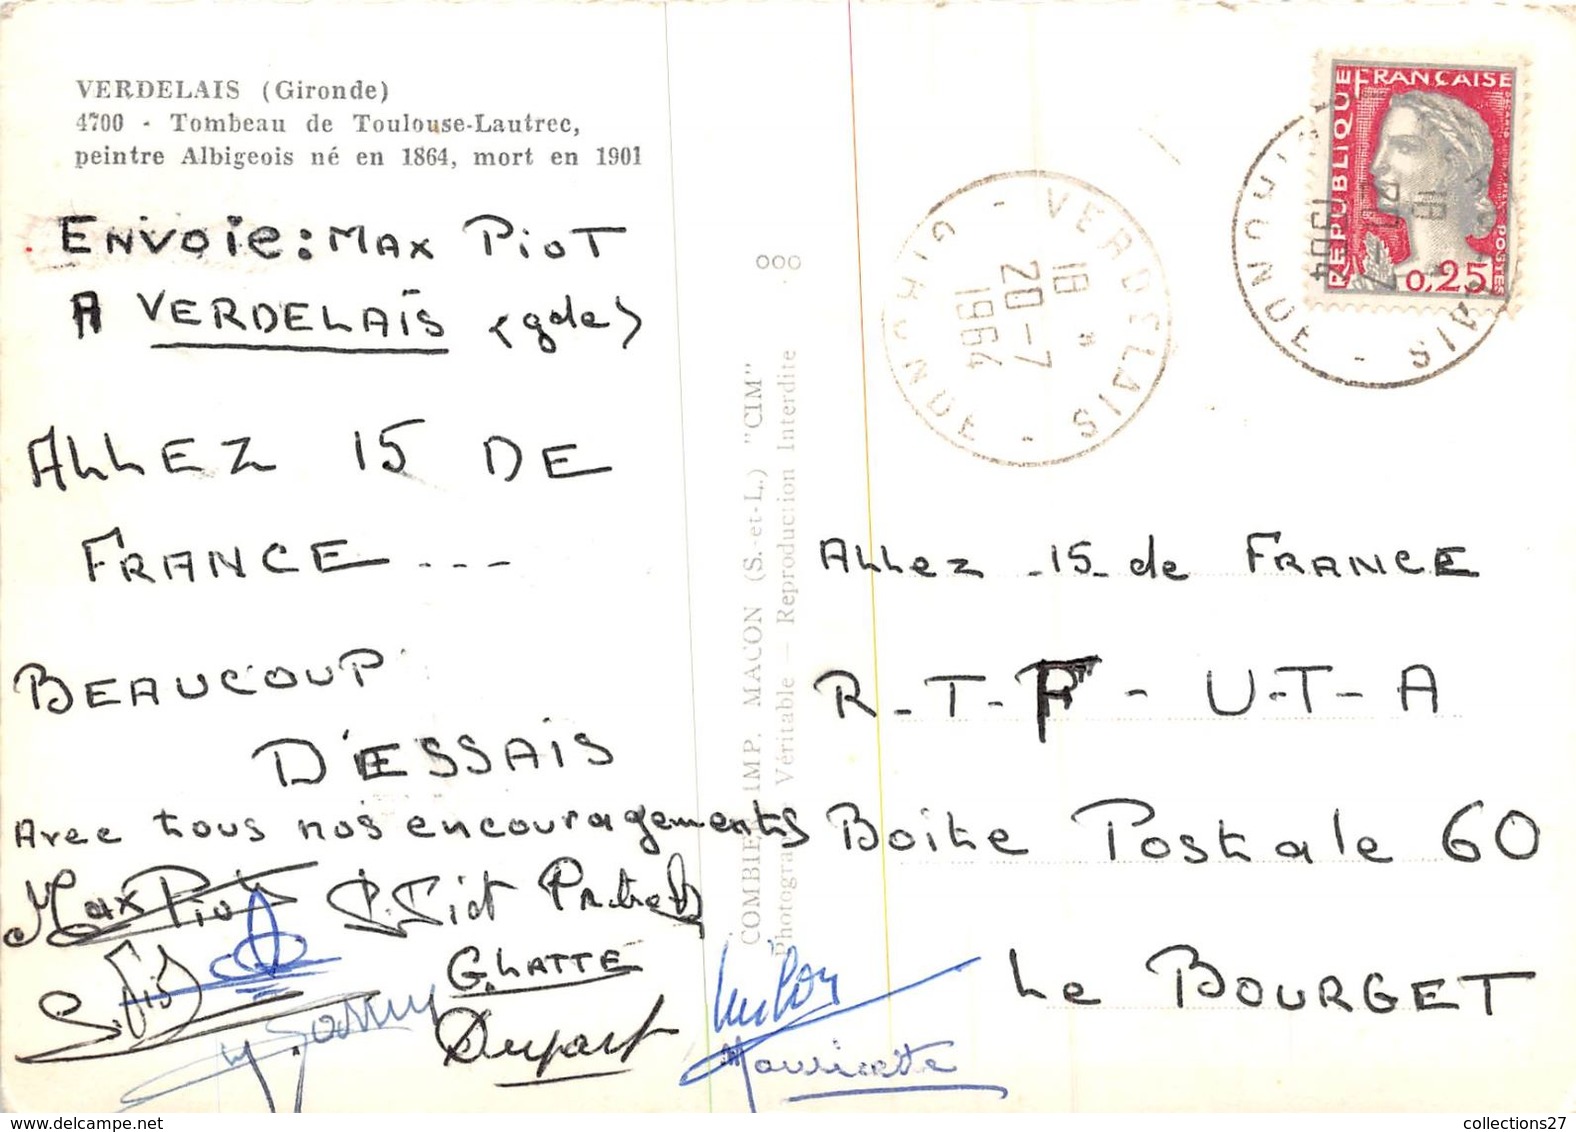 VERDELAIS (Gironde)
4700 - Tombeau de Toulouse-Lautrec,
peintre Albigeois né en 1864, mort en 1901
ENVOIE: MAX PIOT
A VERDELAÏS (gde)
ALLEZ 15 DE
FRANCE ---
BEAUCOUP
D'ESSAIS
Avec tous nos encouragements
Max Piot
G. LATTE
Dupart
Mauricette
COMBIER IMP. MACON (S.-et-L.) "CIM"
Photographie Véritable — Reproduction Interdite
ooo
VERDELAIS - GIRONDE -
18
20-7
1964
*
RÉPUBLIQUE FRANÇAISE
POSTES
0,25
VERDELAIS - GIRONDE
18
20-7
1964
ALLez -15- de FRANCE
R-T-F - U-T-A
Boite Postale 60
Le BOURGET
collections27